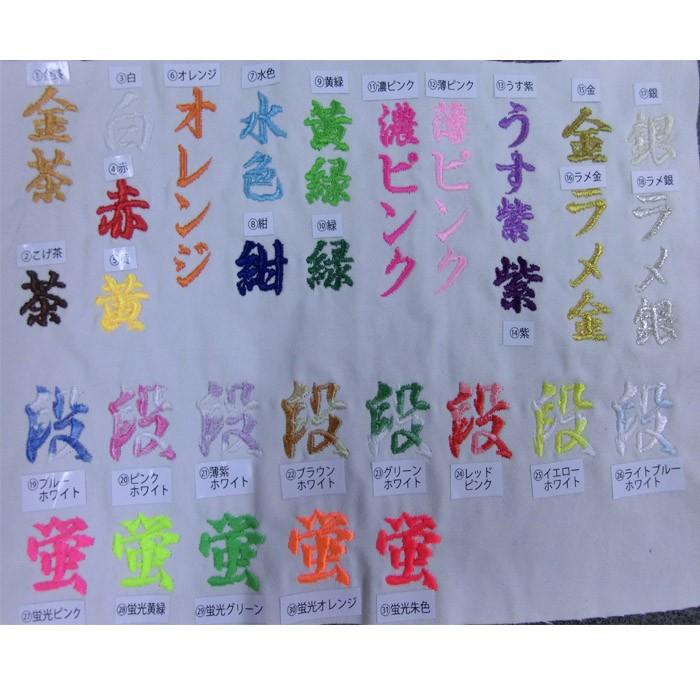 ①金茶
金茶
②こげ茶
茶
③白
白
④赤
赤
⑤黄
黄
⑥オレンジ
オレンジ
⑦水色
水色
⑧紺
紺
⑨黄緑
黄緑
⑩緑
緑
⑪濃ピンク
濃ピンク
⑫薄ピンク
薄ピンク
⑬うす紫
うす紫
紫
⑭紫
⑮金
金
⑯ラメ金
ラメ金
⑰銀
銀
⑱ラメ銀
ラメ銀
段
⑲ブルー
ホワイト
段
⑳ピンク
ホワイト
段
㉑薄紫
ホワイト
段
㉒ブラウン
ホワイト
段
㉓グリーン
ホワイト
段
㉔レッド
ピンク
段
㉕イエロー
ホワイト
段
㉖ライトブルー
ホワイト
蛍
㉗蛍光ピンク
蛍
㉘蛍光黄緑
蛍
㉙蛍光グリーン
蛍
㉚蛍光オレンジ
蛍
㉛蛍光朱色